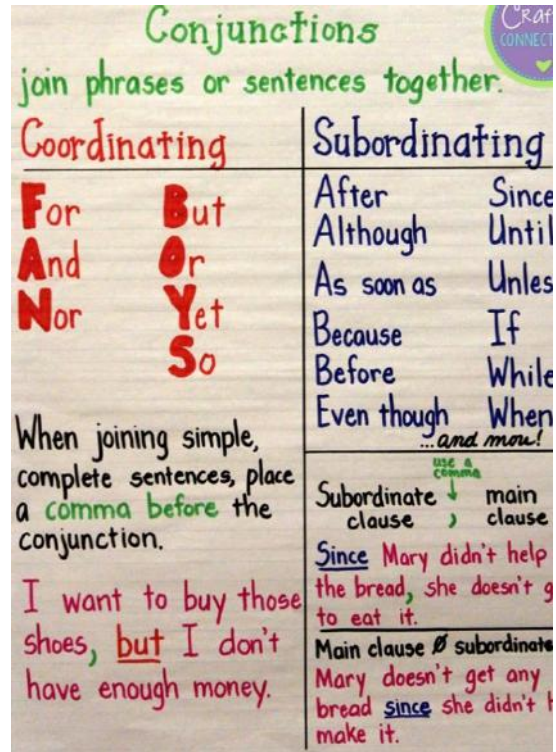 Conjunctions
join phrases or sentences together.
Coordinating
For But
And Or
Nor Yet
So
When joining simple,
complete sentences, place
a comma before the
conjunction.
I want to buy those
shoes, but I don't
have enough money.
Subordinating
After Since
Although Until
As soon as
Because If
Before While
Even though When
...and
use a
comma
Subordinate , main
clause clause
Since Mary didn't help
the bread, she doesn't
to eat it.
Main clause subordinate
Mary doesn't get any
bread since she didn't
make it.